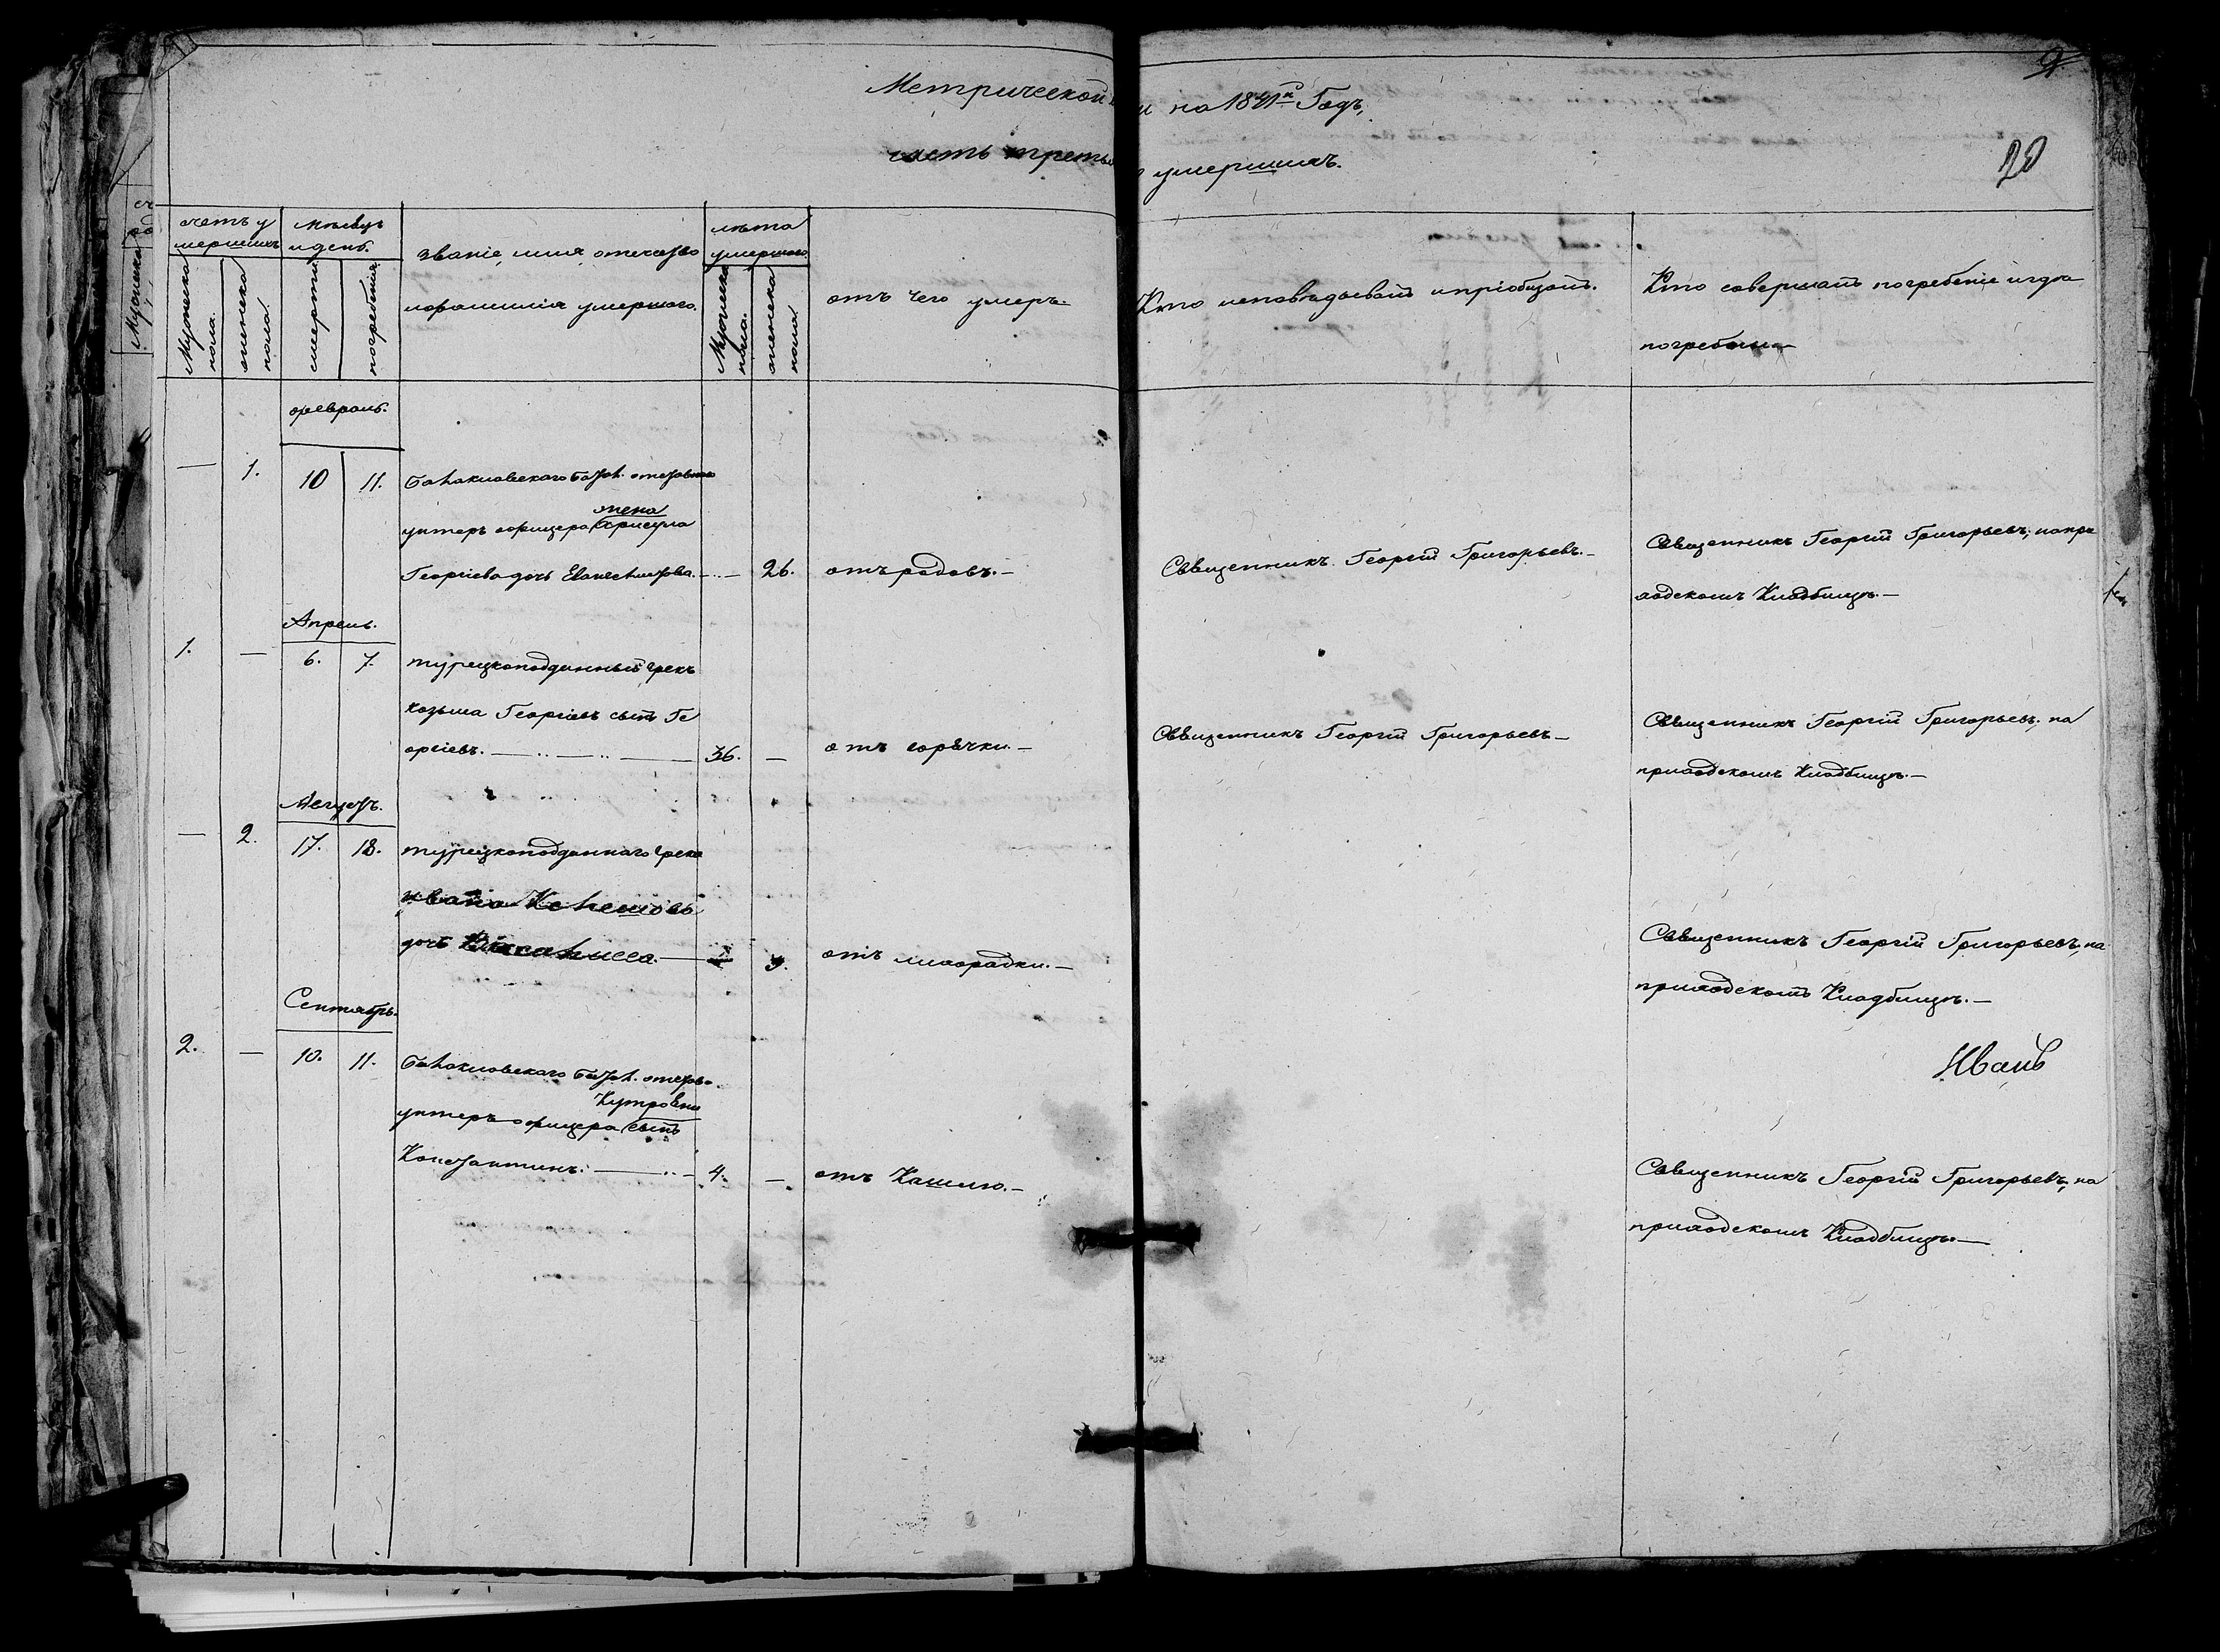 Метрической
и на 1841й Годъ,
часть третья
умершихъ.
20
счетъ у
мершихъ
Мужеска
пола.
женска
пола
мѣсяцъ
и день.
смерти
погребенія
званіе, имя, отечество
и фамилія умершаго.
лѣта
умершаго
Мужеска
пола.
женска
пола
отъ чего умеръ.
Кто исповѣдывалъ и пріобщалъ.
Кто совершалъ погребеніе и гдѣ
погребены
февраль.
— 1. 10 11. Балаклавскаго батал. отставнаго
жена
унтеръ офицера
Георгіева дочь — 26. отъ родовъ.—
Священникъ Георгій Григорьевъ.—
Священникъ Георгій Григорьевъ, на при
ходскомъ Кладбищѣ.—
Апрель.
1. — 6. 7. турецкоподданный грекъ
козьма Георгіевъ сынъ Ге
оргіевъ. — 36. — отъ горячки.—
Священникъ Георгій Григорьевъ—
Священникъ Георгій Григорьевъ, на
приходскомъ Кладбищѣ.—
Августъ.
— 2. 17. 18. турецкоподданнаго грека
ивана
дочь — отъ лихорадки.—
Священникъ Георгій Григорьевъ, на
приходскомъ Кладбищѣ.—
Сентябрь.
Иванъ
2. — 10. 11. Балаклавскаго батал. отстав.
унтеръ-офицера сынъ
Константинъ. — 4. — отъ Кашлю.—
Священникъ Георгій Григорьевъ, на
приходскомъ Кладбищѣ.—